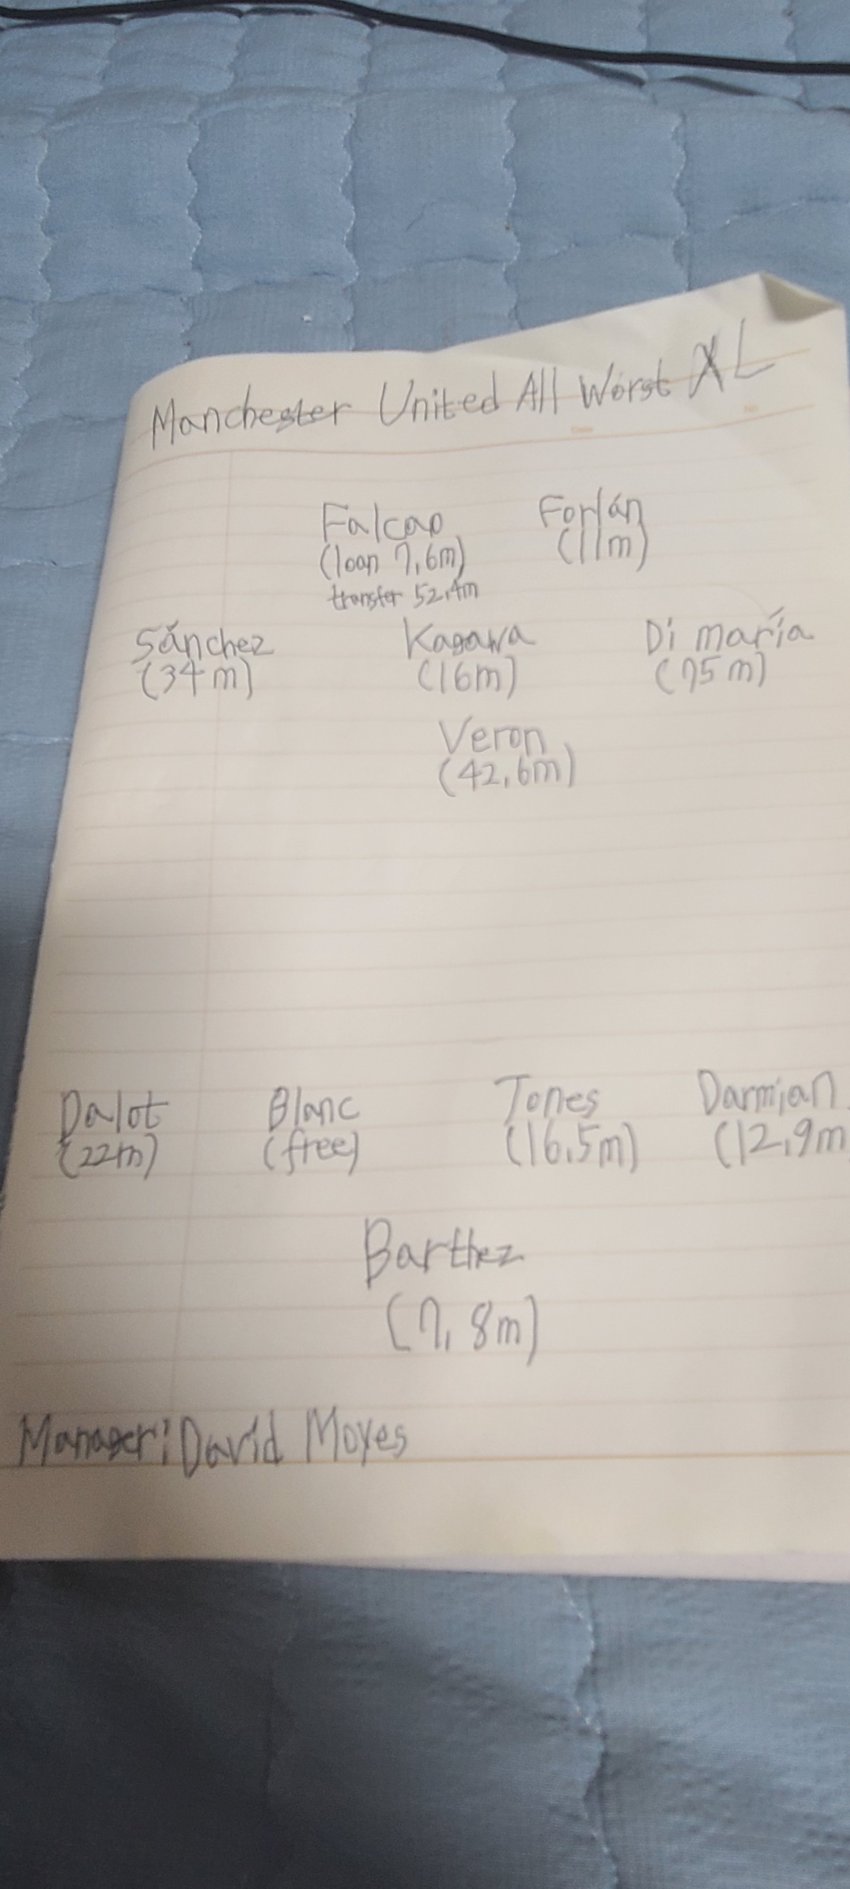 Manchester United All Worst XL
Falcao Forlán
(loan 7,6m) (11m)
transfer 52,4m
Sánchez Kagawa Di maría
(34m) (16m) (75m)
Veron
(42,6m)
Dalot Blanc Jones Darmian
(22m) (free) (16,5m) (12,9m
Barthez
(7,8m)
Manager: David Moyes